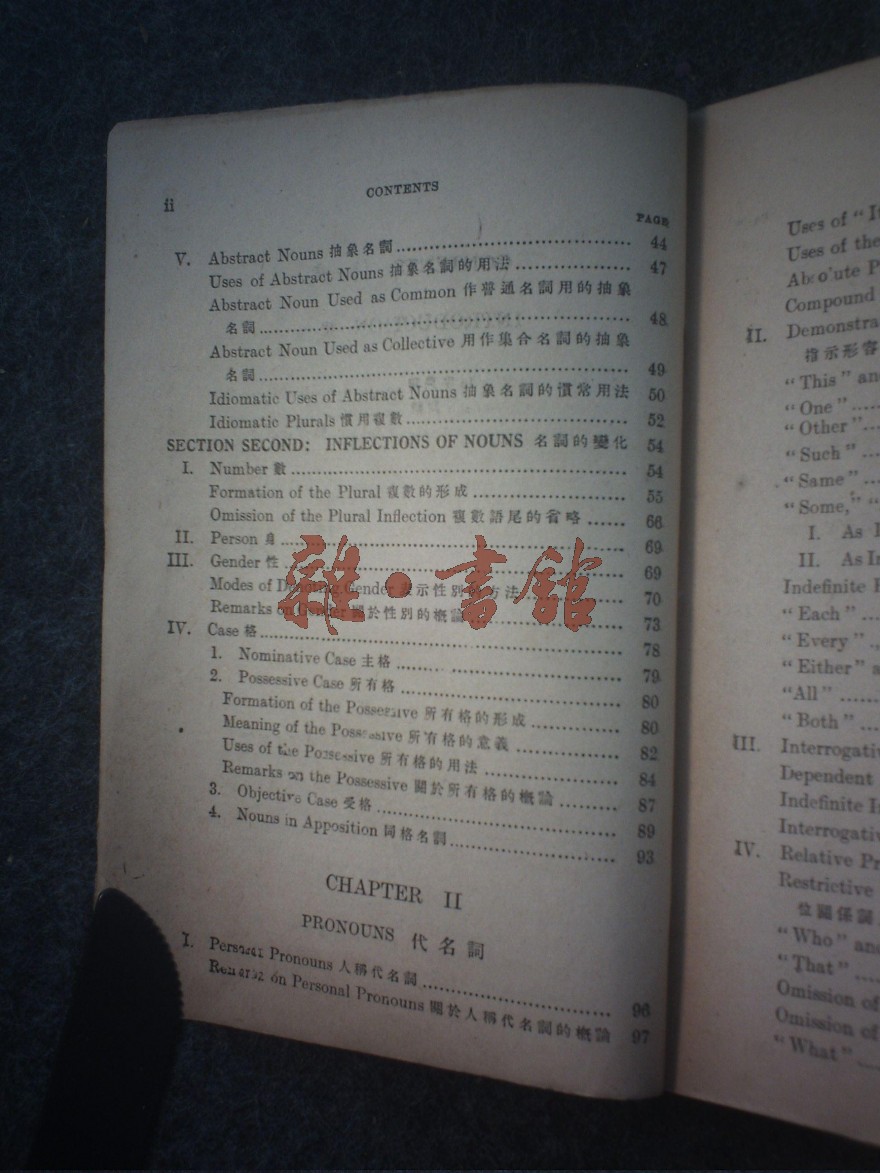 ii
CONTENTS
PAGE
V. Abstract Nouns 抽象名詞 44
Uses of Abstract Nouns 抽象名詞的用法 47
Abstract Noun Used as Common 作普通名詞用的抽象
名詞 48
Abstract Noun Used as Collective 用作集合名詞的抽象
名詞 49
Idiomatic Uses of Abstract Nouns 抽象名詞的慣常用法 50
Idiomatic Plurals 慣用複數 52
SECTION SECOND: INFLECTIONS OF NOUNS 名詞的變化 54
I. Number 數 54
Formation of the Plural 複數的形成 55
Omission of the Plural Inflection 複數語尾的省略 66
II. Person 身 69
III. Gender 性 69
Modes of Denoting Gender 表示性別的方法 70
Remarks on Gender 關於性別的概論 73
雜·書館
IV. Case 格 78
1. Nominative Case 主格 79
2. Possessive Case 所有格 80
Formation of the Possessive 所有格的形成 80
Meaning of the Possessive 所有格的意義 82
Uses of the Possessive 所有格的用法 84
Remarks on the Possessive 關於所有格的概論 87
3. Objective Case 受格 89
4. Nouns in Apposition 同格名詞 93
CHAPTER II
PRONOUNS 代名詞
I. Personal Pronouns 人稱代名詞 96
Remarks on Personal Pronouns 關於人稱代名詞的概論 97
Uses of "It
Uses of the
Absolute P
Compound
II. Demonstra
指示形容
"This" an
"One"
"Other"
"Such"
"Same"
"Some," "
I. As
II. As In
Indefinite
"Each"
"Every"
"Either" a
"All"
"Both"
III. Interrogativ
Dependent
Indefinite In
Interrogativ
IV. Relative Pr
Restrictive
位關係詞
"Who" an
"That"
Omission of
Omission of
"What"